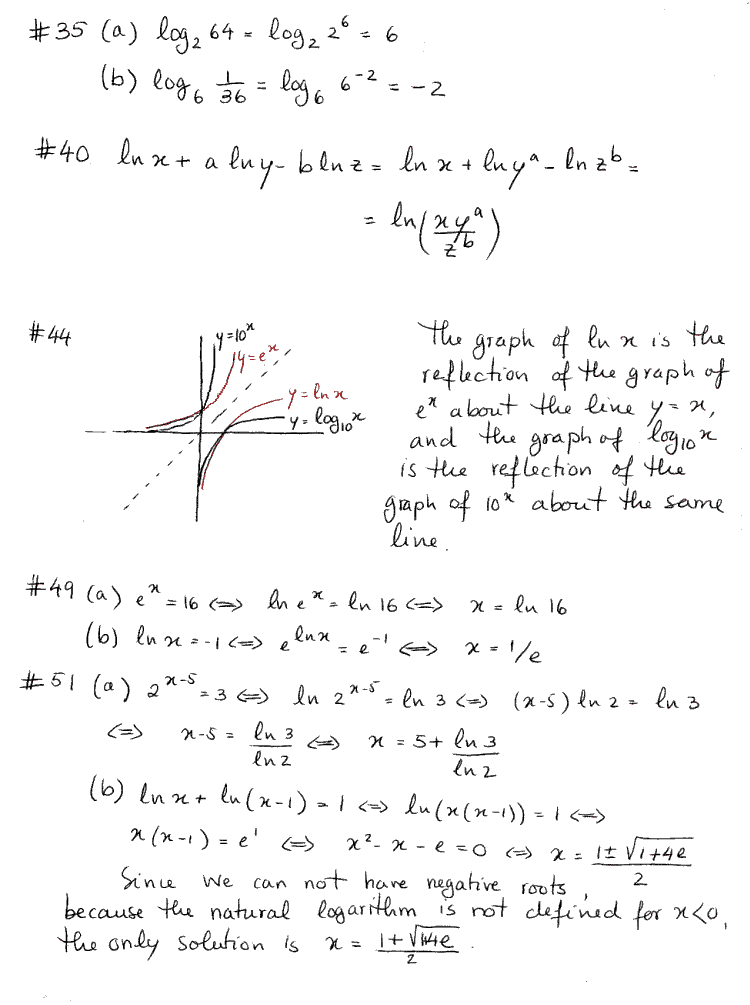 #35 (a) log₂ 64 = log₂ 2⁶ = 6
(b) log₆ 1/36 = log₆ 6⁻² = -2
#40 ln x + a ln y - b ln z = ln x + ln yᵃ - ln zᵇ =
= ln(xyᵃ/zᵇ)
#44
y=10ˣ
y=eˣ
y=ln x
y=log₁₀x
The graph of ln x is the
reflection of the graph of
eˣ about the line y = x,
and the graph of log₁₀x
is the reflection of the
graph of 10ˣ about the same
line.
#49 (a) eˣ = 16 <=> ln eˣ = ln 16 <=> x = ln 16
(b) ln x = -1 <=> e^(ln x) = e⁻¹ <=> x = 1/e
#51 (a) 2^(x-5) = 3 <=> ln 2^(x-5) = ln 3 <=> (x-5) ln 2 = ln 3
<=> x-5 = ln 3/ln 2 <=> x = 5 + ln 3/ln 2
(b) ln x + ln(x-1) = 1 <=> ln(x(x-1)) = 1 <=>
x(x-1) = e¹ <=> x² - x - e = 0 <=> x = (1±√(1+4e))/2
Since we can not have negative roots,
because the natural logarithm is not defined for x<0,
the only solution is x = (1+√(1+4e))/2.